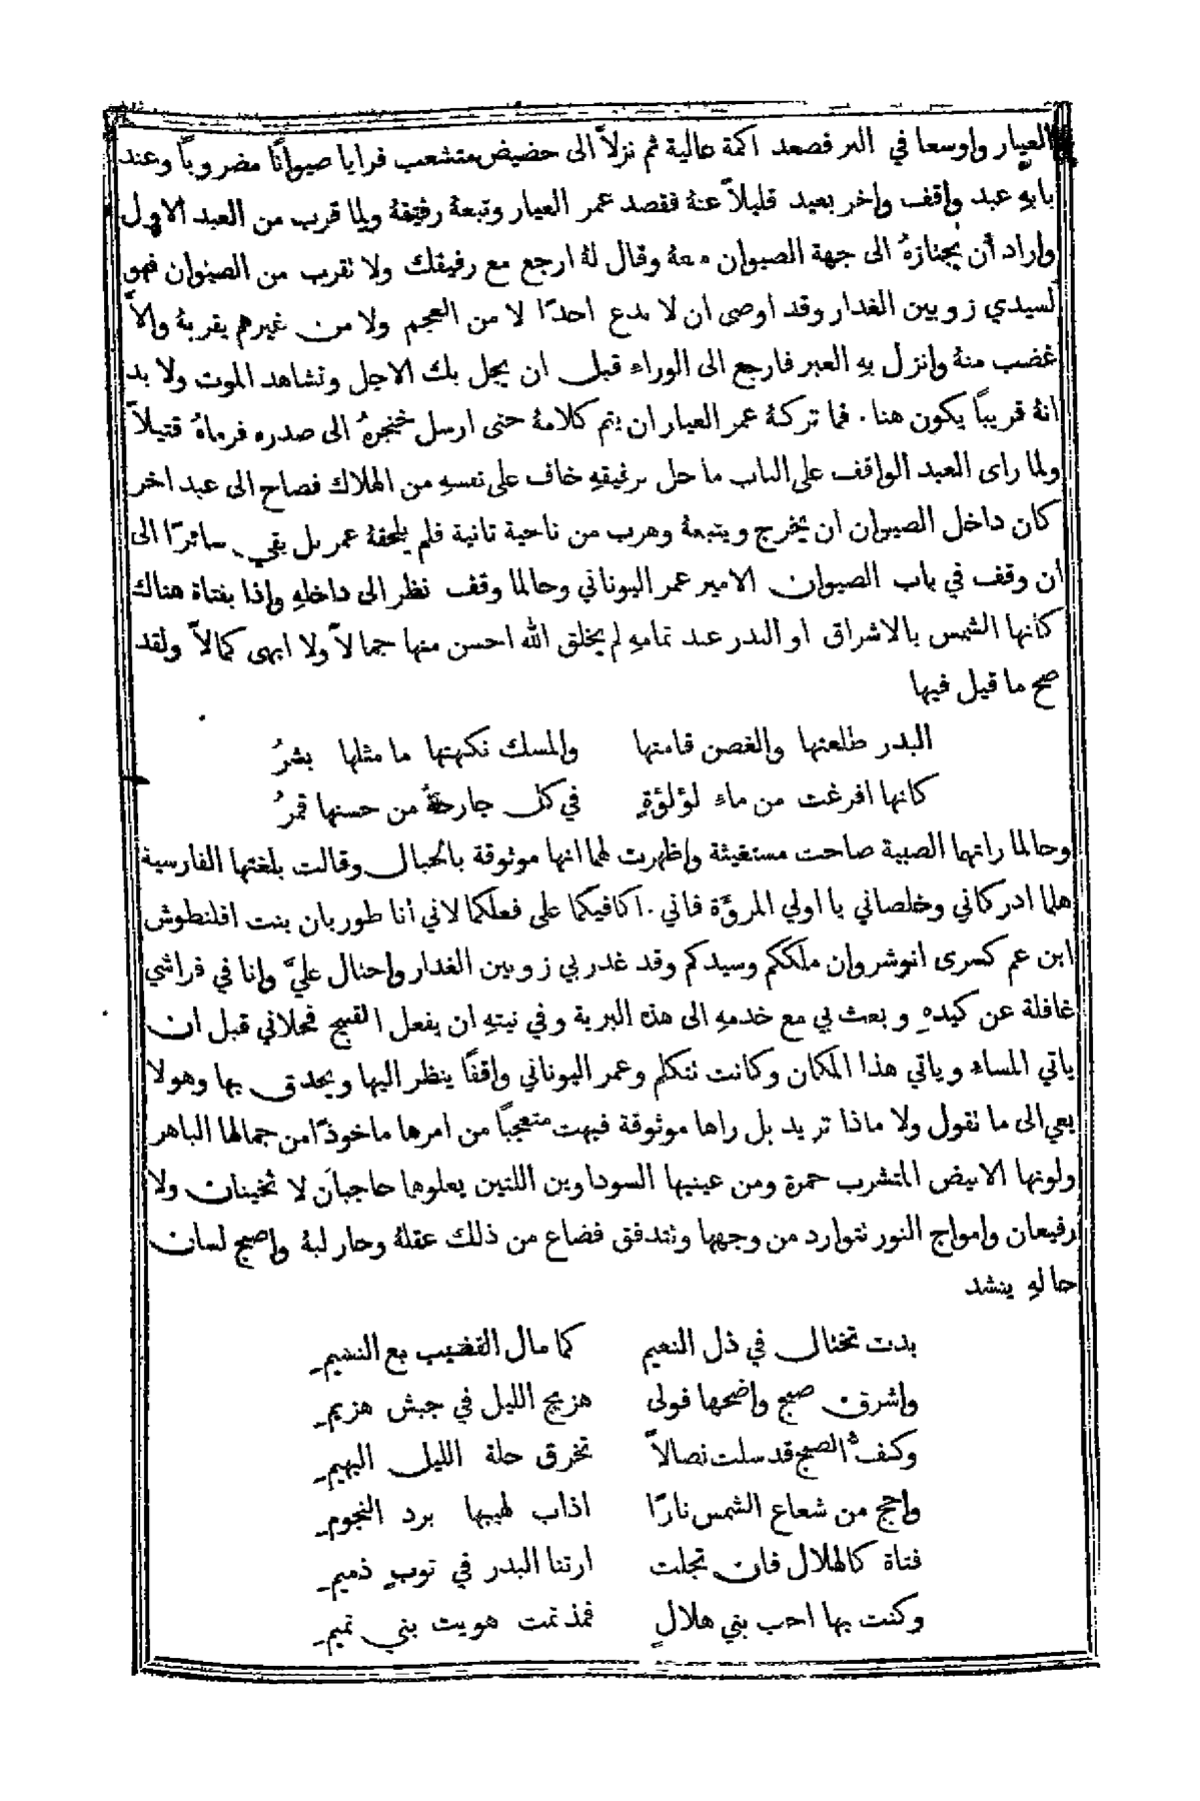 العيار واوسعا في البر فصعد اكمة عالية ثم نزلاً الى حضيض متشعب فرايا صيوانًا مضروبًا وعند
بابهِ عبد واقف واخر بعيد قليلاً عنهُ فقصد عمر العيار وتبعهُ رفيقهُ ولما قرب من العبد الاول
واراد أن يجتازهُ الى جهة الصيوان معهُ وقال لهُ ارجع مع رفيقك ولا تقرب من الصيوان فهو
لسيدي زوبين الغدار وقد اوصى ان لا ندع احدًا لا من العجم ولا من غيرهم يقربهُ والاَّ
غضب منهُ وانزل بهِ العبر فارجع الى الوراء قبل ان يحل بك الاجل وتشاهد الموت ولا بد
انهُ قريبًا يكون هنا. فما تركهُ عمر العيار ان يتم كلامهُ حتى ارسل خنجرهُ الى صدره فرماهُ قتيلاً
ولما راى العبد الواقف على الباب ما حل برفيقهِ خاف على نفسهِ من الهلاك فصاح الى عبد اخر
كان داخل الصيوان ان يخرج ويتبعهُ وهرب من ناحية ثانية فلم يلحقهُ عمر بل بقي سائرًا الى
ان وقف في باب الصيوان الامير عمر اليوناني وحالما وقف نظر الى داخلهِ واذا بفتاة هناك
كانها الشمس بالاشراق او البدر عند تمامهِ لم يخلق الله احسن منها جمالاً ولا ابهى كمالاً ولقد
صح ما قيل فيها
البدر طلعتها والغصن قامتها والمسك نكهتها ما مثلها بشرُ
كانها افرغت من ماء لؤلؤةٍ في كل جارحةٍ من حسنها قمرُ
وحالما راتهما الصبية صاحت مستغيثة واظهرت لهما انها موثوقة بالحبال وقالت بلغتها الفارسية
هلما ادركاني وخلصاني يا اولي المروَّة فاني. اكافيكما على فعلكما لاني أنا طوربان بنت افلنطوش
ابن عم كسرى انوشروان ملككم وسيدكم وقد غدر بي زوبين الغدار واحتال عليَّ وانا في فراشي
غافلة عن كيدهِ وبعث بي مع خدمهِ الى هذه البرية وفي نيتهِ ان يفعل القبيح فحلاني قبل ان
ياتي المساء وياتي هذا المكان وكانت تتكلم وعمر اليوناني واقفًا ينظر اليها ويحدق بها وهو لا
يعي الى ما تقول ولا ماذا تريد بل راها موثوقة فبهت متعجبًا من امرها ماخوذًا من جمالها الباهر
ولونها الابيض المتشرب حمرة ومن عينيها السوداوين اللتين يعلوها حاجبان لا ثخينات ولا
رفيعان وامواج النور تتوارد من وجهها وتتدفق فضاع من ذلك عقلهُ وحار لبهُ واصبح لسان
حالهِ ينشد
بدت تختال في ذل النعيم كما مال القضيب مع النسيم
واشرق صبح واضحها فولى هزيج الليل في جبش هزيم
وكف الصبح قد سلت نصالاً تخرق حلة الليل البهيم
واجج من شعاع الشمس نارًا اذاب لهيبها برد النجوم
فتاة كالهلال فان تجلت ارتنا البدر في ثوبٍ ذميم
وكنت بها احب بني هلالٍ فمذ تمت هويت بني تميم